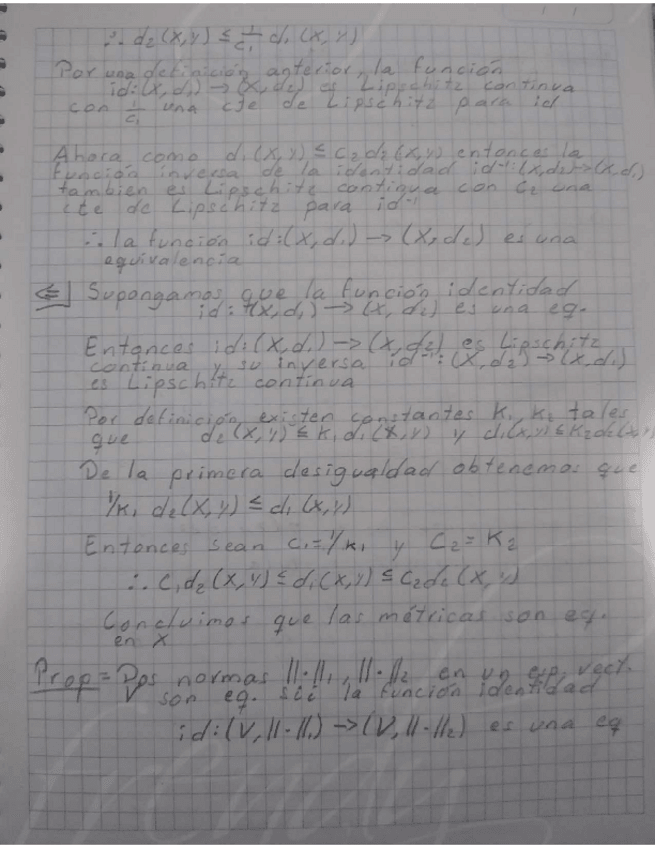 ∴ d₂(x,y) ≤ 1/c₁ d₁(x,y)
Por una definición anterior, la función
id:(X,d₁)→(X,d₂) es Lipschitz continua
con 1/c₁ una cte de Lipschitz para id
Ahora como d₁(x,y) ≤ c₂d₂(x,y) entonces la
función inversa de la identidad id⁻¹:(X,d₂)→(X,d₁)
tambien es Lipschitz continua con c₂ una
cte de Lipschitz para id⁻¹
∴ la función id:(X,d₁)→(X,d₂) es una
equivalencia
⇐] Supongamos que la función identidad
id:(X,d₁)→(X,d₂) es una eq.
Entonces id:(X,d₁)→(X,d₂) es Lipschitz
continua y su inversa id⁻¹:(X,d₂)→(X,d₁)
es Lipschitz continua
Por definición existen constantes K₁, K₂ tales
que d₂(x,y) ≤ K₁d₁(x,y) y d₁(x,y) ≤ K₂d₂(x,y)
De la primera desigualdad obtenemos que
1/K₁ d₂(x,y) ≤ d₁(x,y)
Entonces sean C₁=1/K₁ y C₂=K₂
∴ C₁d₂(x,y) ≤ d₁(x,y) ≤ C₂d₂(x,y)
Concluimos que las métricas son eq.
en X
Prop = Dos normas ||·||₁, ||·||₂ en un esp. vect.
V son eq. sii la función identidad
id:(V,||·||₁)→(V,||·||₂) es una eq